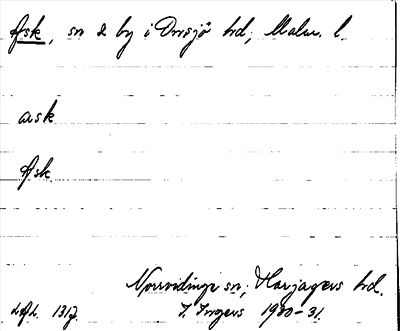 Ask, sn & by i Onsjö hd; Malm. l.
ask
Ask.
Norrvidinge sn, Harjagers hd.
1317. I. Ingers 1930-31.